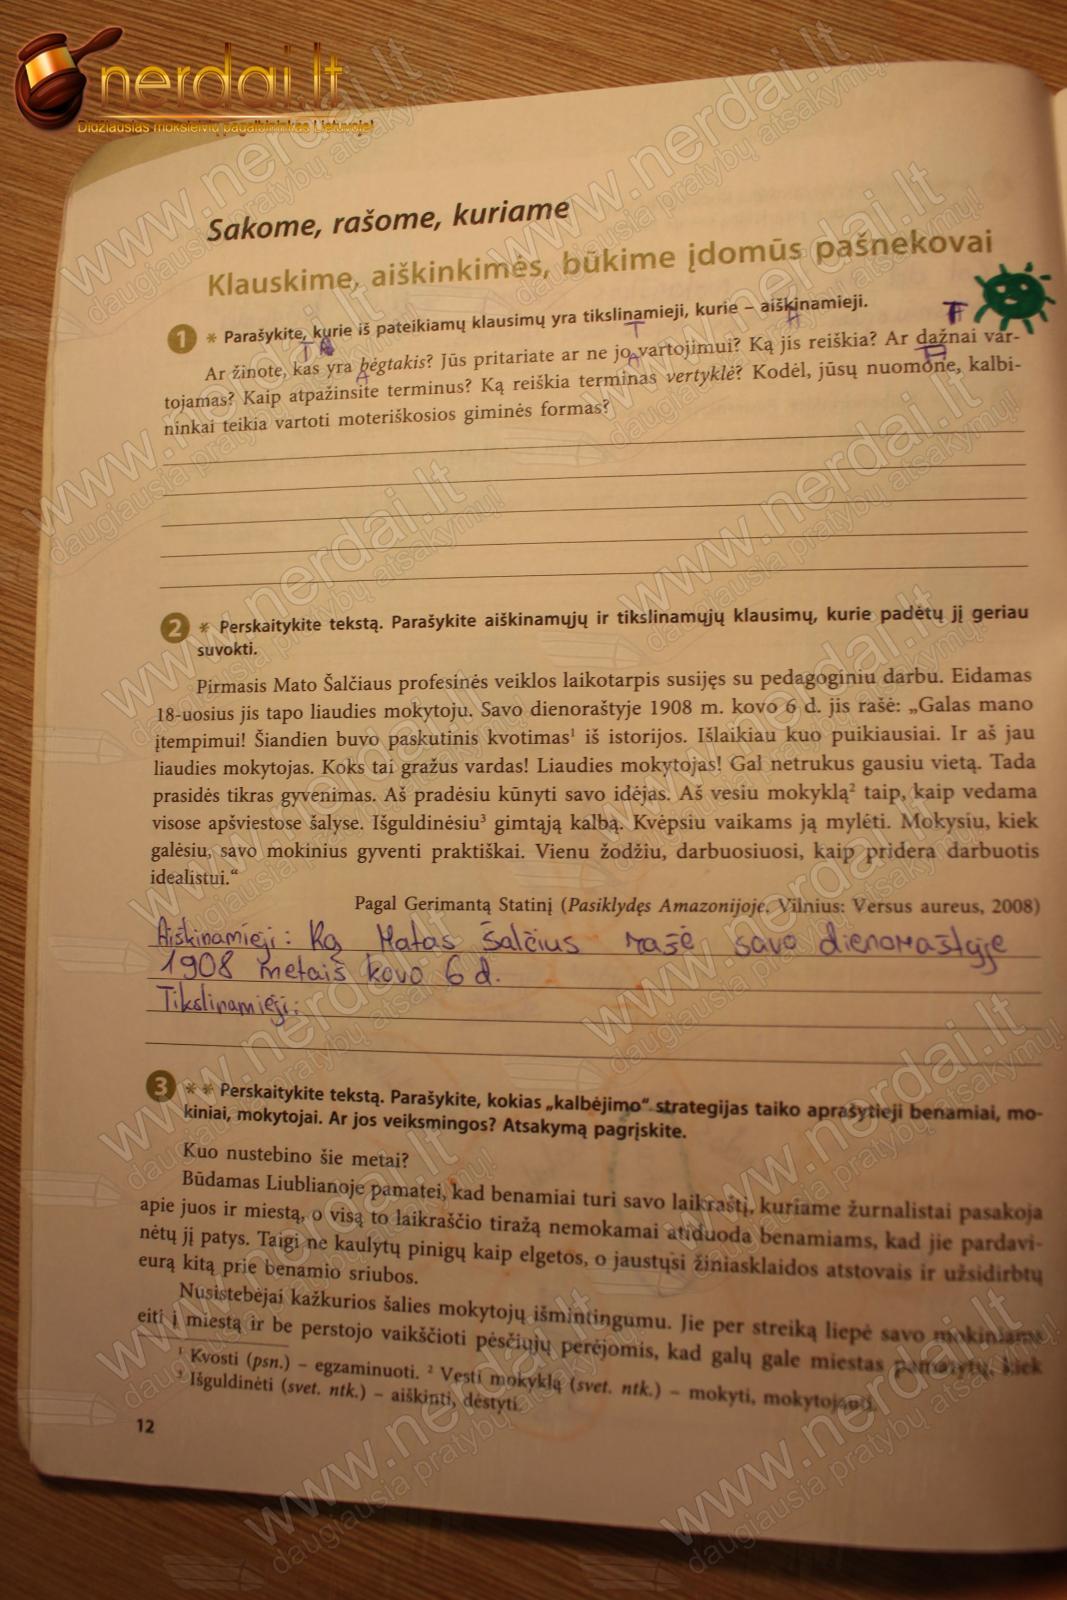 nerdai.lt
Didžiausias moksleivių pagalbininkas Lietuvoje!
Sakome, rašome, kuriame
Klauskime, aiškinkimės, būkime įdomūs pašnekovai
1 * Parašykite, kurie iš pateikiamų klausimų yra tikslinamieji, kurie – aiškinamieji.
Ar žinote, kas yra bėgtakis? Jūs pritariate ar ne jo vartojimui? Ką jis reiškia? Ar dažnai var-
tojamas? Kaip atpažinsite terminus? Ką reiškia terminas vertyklė? Kodėl, jūsų nuomone, kalbi-
ninkai teikia vartoti moteriškosios giminės formas?
2 * Perskaitykite tekstą. Parašykite aiškinamųjų ir tikslinamųjų klausimų, kurie padėtų jį geriau
suvokti.
Pirmasis Mato Šalčiaus profesinės veiklos laikotarpis susijęs su pedagoginiu darbu. Eidamas
18-uosius jis tapo liaudies mokytoju. Savo dienoraštyje 1908 m. kovo 6 d. jis rašė: „Galas mano
įtempimui! Šiandien buvo paskutinis kvotimas¹ iš istorijos. Išlaikiau kuo puikiausiai. Ir aš jau
liaudies mokytojas. Koks tai gražus vardas! Liaudies mokytojas! Gal netrukus gausiu vietą. Tada
prasidės tikras gyvenimas. Aš pradėsiu kūnyti savo idėjas. Aš vesiu mokyklą² taip, kaip vedama
visose apšviestose šalyse. Išguldinėsiu³ gimtąją kalbą. Kvėpsiu vaikams ją mylėti. Mokysiu, kiek
galėsiu, savo mokinius gyventi praktiškai. Vienu žodžiu, darbuosiuosi, kaip pridera darbuotis
idealistui.“
Pagal Gerimantą Statinį (Pasiklydęs Amazonijoje. Vilnius: Versus aureus, 2008)
Aiškinamieji: Ką Matas Šalčius rašė savo dienoraštyje
1908 metais kovo 6 d.
Tikslinamieji:
3 * * Perskaitykite tekstą. Parašykite, kokias „kalbėjimo“ strategijas taiko aprašytieji benamiai, mo-
kiniai, mokytojai. Ar jos veiksmingos? Atsakymą pagrįskite.
Kuo nustebino šie metai?
Būdamas Liublianoje pamatei, kad benamiai turi savo laikraštį, kuriame žurnalistai pasakoja
apie juos ir miestą, o visą to laikraščio tiražą nemokamai atiduoda benamiams, kad jie pardavi-
nėtų jį patys. Taigi ne kaulytų pinigų kaip elgetos, o jaustųsi žiniasklaidos atstovais ir užsidirbtų
eurą kitą prie benamio sriubos.
Nusistebėjai kažkurios šalies mokytojų išmintingumu. Jie per streiką liepė savo mokiniams
eiti į miestą ir be perstojo vaikščioti pėsčiųjų perėjomis, kad galų gale miestas pamatytų, kiek
¹ Kvosti (psn.) – egzaminuoti. ² Vesti mokyklą (svet. ntk.) – mokyti, mokytojauti.
³ Išguldinėti (svet. ntk.) – aiškinti, dėstyti.
12
www.nerdai.lt
daugiausia pratybų atsakymų!